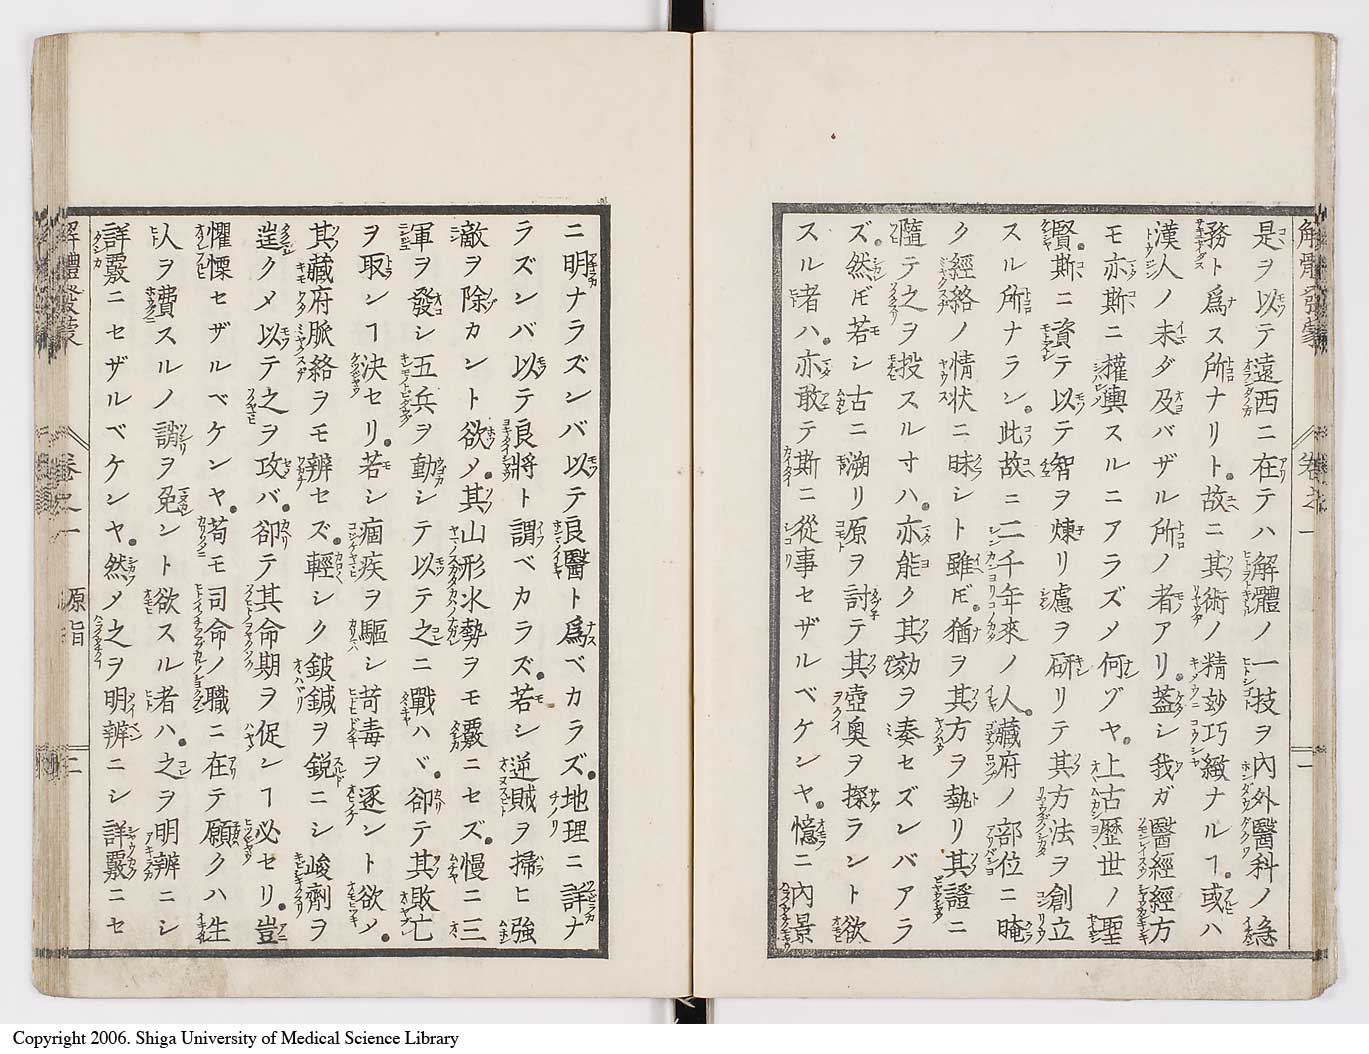 解體發蒙 卷之一 二
是ヲ以テ遠西ニ在テハ解體ノ一技ヲ內外醫科ノ急
務ト爲ス所ナリト故ニ其術ノ精妙巧緻ナルヿ或ハ
漢人ノ未ダ及バザル所ノ者アリ蓋シ我ガ醫經經方
モ亦斯ニ權輿スルニアラズメ何ゾヤ上古歷世ノ聖
賢斯ニ資テ以テ智ヲ煉リ慮ヲ研リテ其方法ヲ創立
スル所ナラン此故ニ二千年來ノ人藏府ノ部位ニ晻
ク經絡ノ情狀ニ昧シト雖𪜈猶ヲ其方ヲ執リ其證ニ
隨テ之ヲ投スル寸ハ亦能ク其効ヲ奏セズンバアラ
ズ然𪜈若シ古ニ溯リ原ヲ討テ其壺奧ヲ探ラント欲
スル者ハ亦敢テ斯ニ從事セザルベケンヤ憶ニ內景
ニ明ナラズンバ以テ良醫ト爲ベカラズ地理ニ詳ナ
ラズンバ以テ良將ト謂ベカラズ若シ逆賊ヲ掃ヒ強
敵ヲ除カント欲メ其山形水勢ヲモ覈ニセズ慢ニ三
軍ヲ發シ五兵ヲ動シテ以テ之ニ戰ハバ卻テ其敗亡
ヲ取ンヿ決セリ若シ痼疾ヲ驅シ苛毒ヲ逐ント欲メ
其藏府脈絡ヲモ辨セズ輕シク鈹鍼ヲ銳ニシ峻劑ヲ
逞クメ以テ之ヲ攻バ卻テ其命期ヲ促ンヿ必セリ豈
懼慄セザルベケンヤ苟モ司命ノ職ニ在テ願クハ生
人ヲ費スルノ誚ヲ免ント欲スル者ハ之ヲ明辨ニシ
詳覈ニセザルベケンヤ然メ之ヲ明辨ニシ詳覈ニセ
解體發蒙 卷之一 原旨 二
Copyright 2006. Shiga University of Medical Science Library